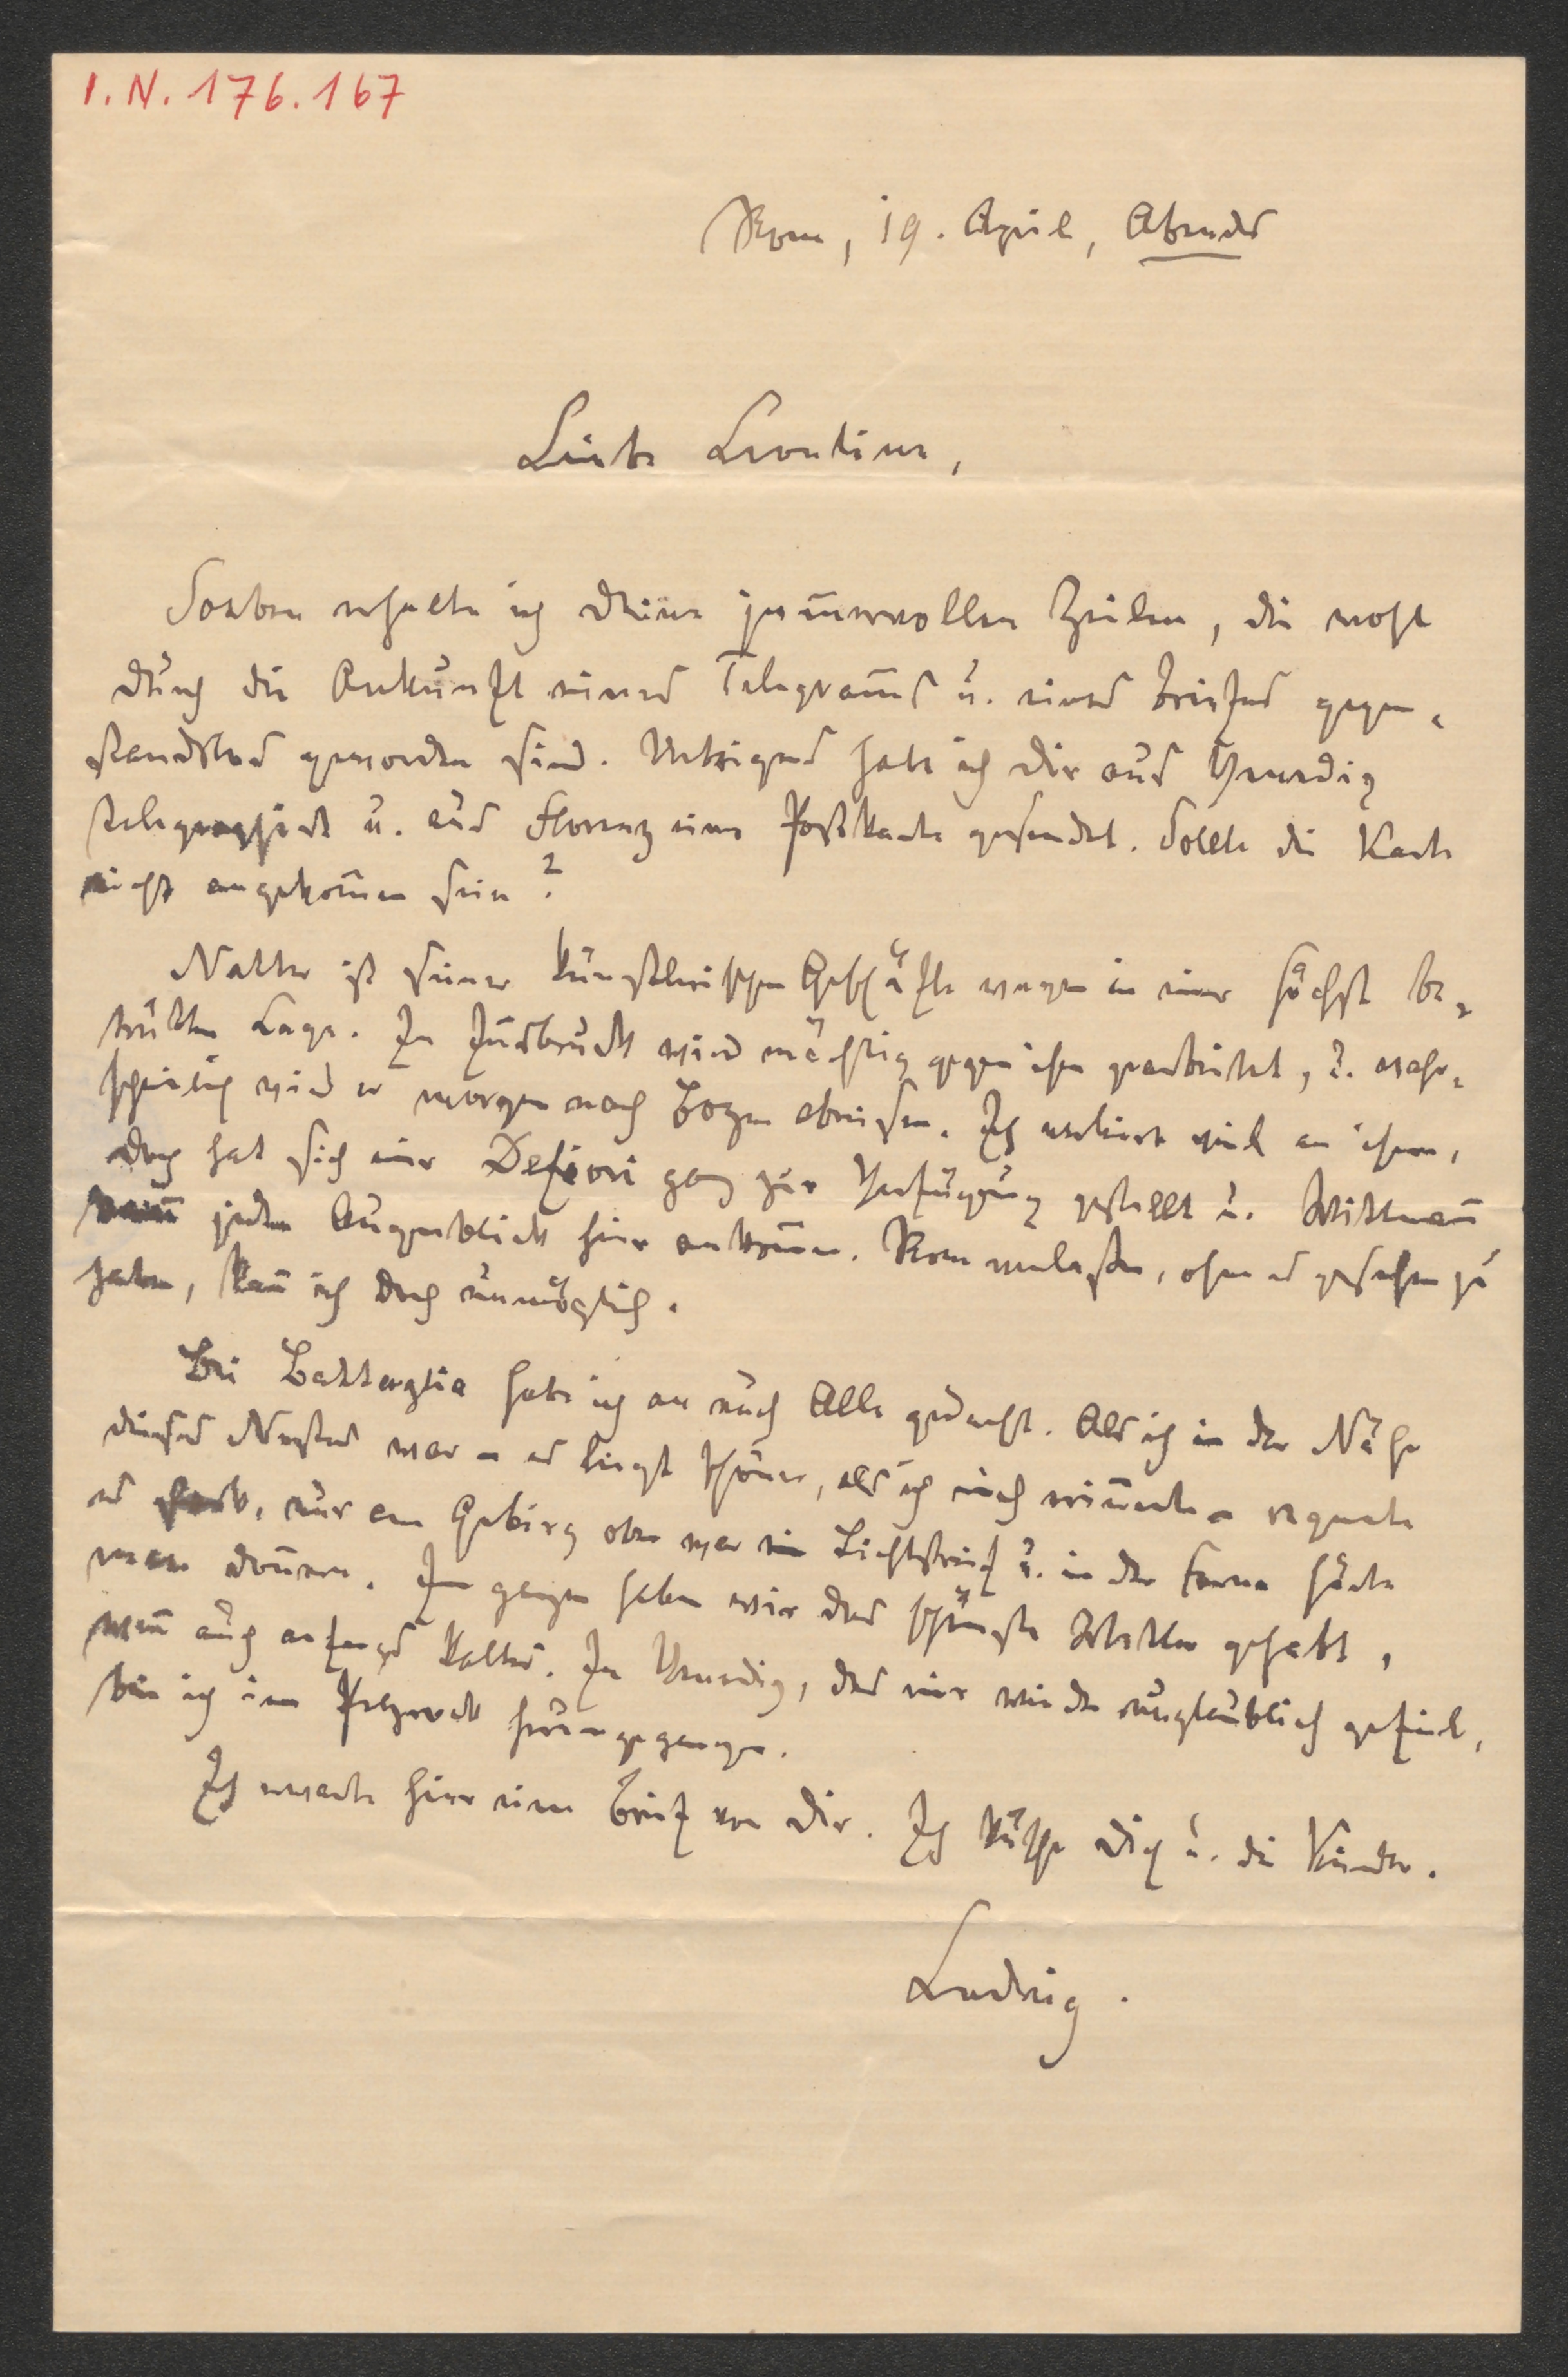 I. N. 176.167
Rom, 19. April, Abends
Liebe Leontine,
Soeben erhalte ich deine jam̄ervollen Zeilen, die wohl
durch die Ankunft eines Telegram̄s u. eines Briefes gegen-
standslos geworden sind. Uebrigens habe ich dir aus Venedig
telegraphirt u. aus Florenz eine Postkarte gesendet. Sollte die Karte
nicht angekom̄en sein?
Natter ist seiner künstlerischen Geschäfte wegen in einer höchst be-
trübten Lage. In Insbruck wird mächtig gegen ihn gearbeitet, u. wahr-
scheinlich wird er morgen nach Bozen abreisen. Ich verliere viel an ihm,
doch hat sich mir Defiori ganz zur Verfügung gestellt u. Wittman̄
kan̄ jeden Augenblick hier ankom̄en. Rom verlassen, ohne es gesehen zu
haben, kan̄ ich doch unmöglich.
Bei Battaglia habe ich an euch Alle gedacht. Als ich in der Nähe
dieses Nestes war – es liegt schöner, als ich mich erin̄erte – regnete
es stark, nur am Gebirg oben war ein Lichtstreif u. in der Ferne hörte
man don̄ern. Im ganzen haben wir das schönste Wetter gehabt,
wen̄ auch anfangs kaltes. In Venedig, das mir wieder unglaublich gefiel,
bin ich im Pelzrock herumgegangen.
Ich erwarte hier einen Brief von dir. Ich küsse dich u. die Kinder.
Ludwig.